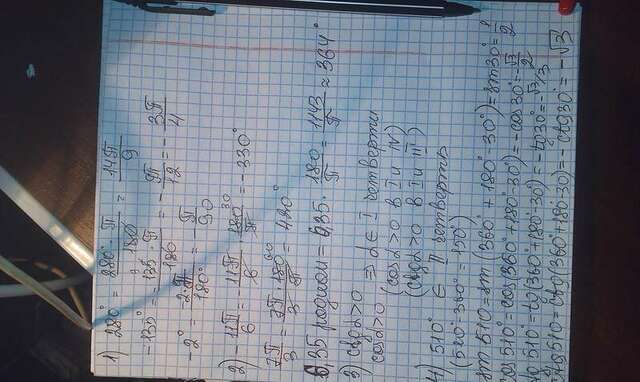 1) 280° = 280° · π / 180 = 14π / 9
-135° = - 135 · π / 180 = - 3π / 4
-2° = - 2 · π / 180° = - π / 90
2) 11π / 6 = 11π / 6 · 180 30 / π = 330°
7π / 3 = 7π / 3 · 180 60 = 420°
6,35 радиан = 6,35 · 180 / π = 1143 / π ≈ 364°
3) ctgα>0
cosα>0 ⇒ α ∈ I четверти
(cosα>0 в I и IV)
(ctgα>0 в I и III)
4) 510° ∈ II четверть
(510°-360° = 150°)
sin 510 = sin (360° + 180° - 30°) = sin 30° = 1/2
cos 510° = cos(360°+180°-30°) = -cos 30° = -√3/2
tg 510° = tg(360°+180°-30°) = -tg 30° = -√3/3
ctg 510 = ctg(360°+180°-30) = -ctg 30° = -√3